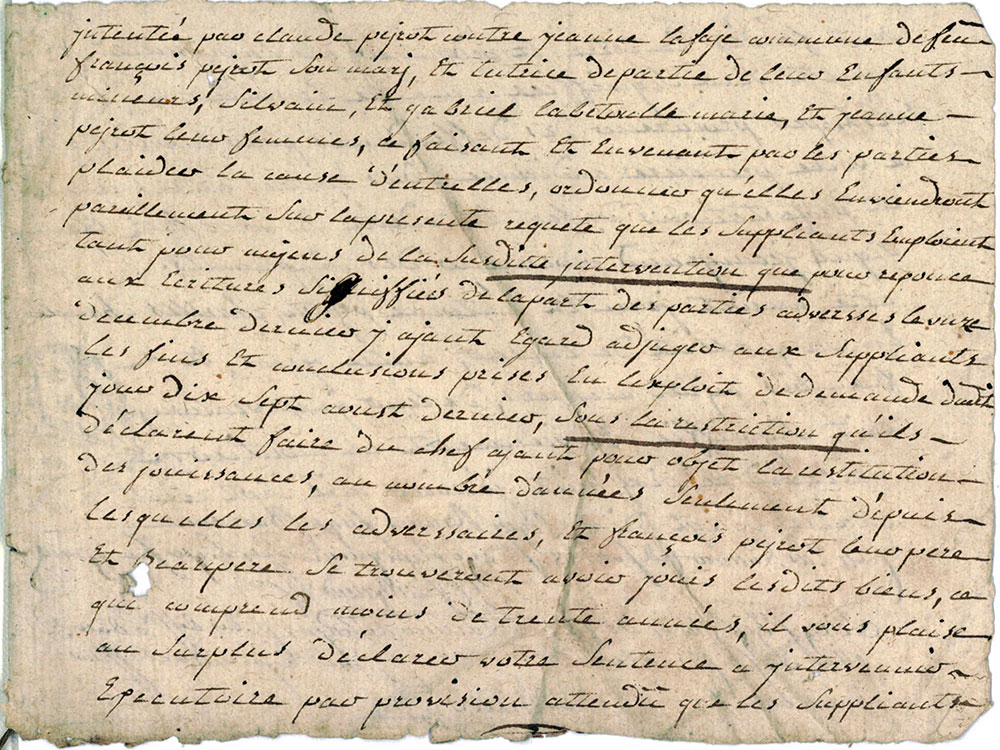 jntentée par claude pejrot contre jeanne lafaje commune de feu
françois pejrot son marj, et tutrice de partie de leur Enfants
mineurs, Silvain, Et gabriel labetoulle marie, Et jeanne
pejrot leur femmes, ce faisant Et Envenant par les parties
plaider la cause d'entrelles, ordonner qu'elles Enviendront
pareillement Sur la presente requete que les Suppliants Emploient
tant pour mojens de la Susditte jntervention que pour reponce
aux Ecritures Signiffiées de la part des parties adversses le onze
decembre dernier j ajant Egard adjuger aux Suppliants
les fins Et conclusions prises En l'exploit de demande dudit
jour dix Sept aoust dernier, Sous la restriction qu'ils
déclarent faire du chef ajant pour objet la restitution
des jouissances, au nombre d'années Seulement dépuis
lesquelles les adverssaires, Et françois pejrot leur pere
Et Beaupere Se trouveront avoir jouis lesdits biens, ce
qui comprend moins de trente années, il vous plaise
au Surplus déclarer votre Sentence a jntervennir
Executoire par provision attendu que les Suppliants